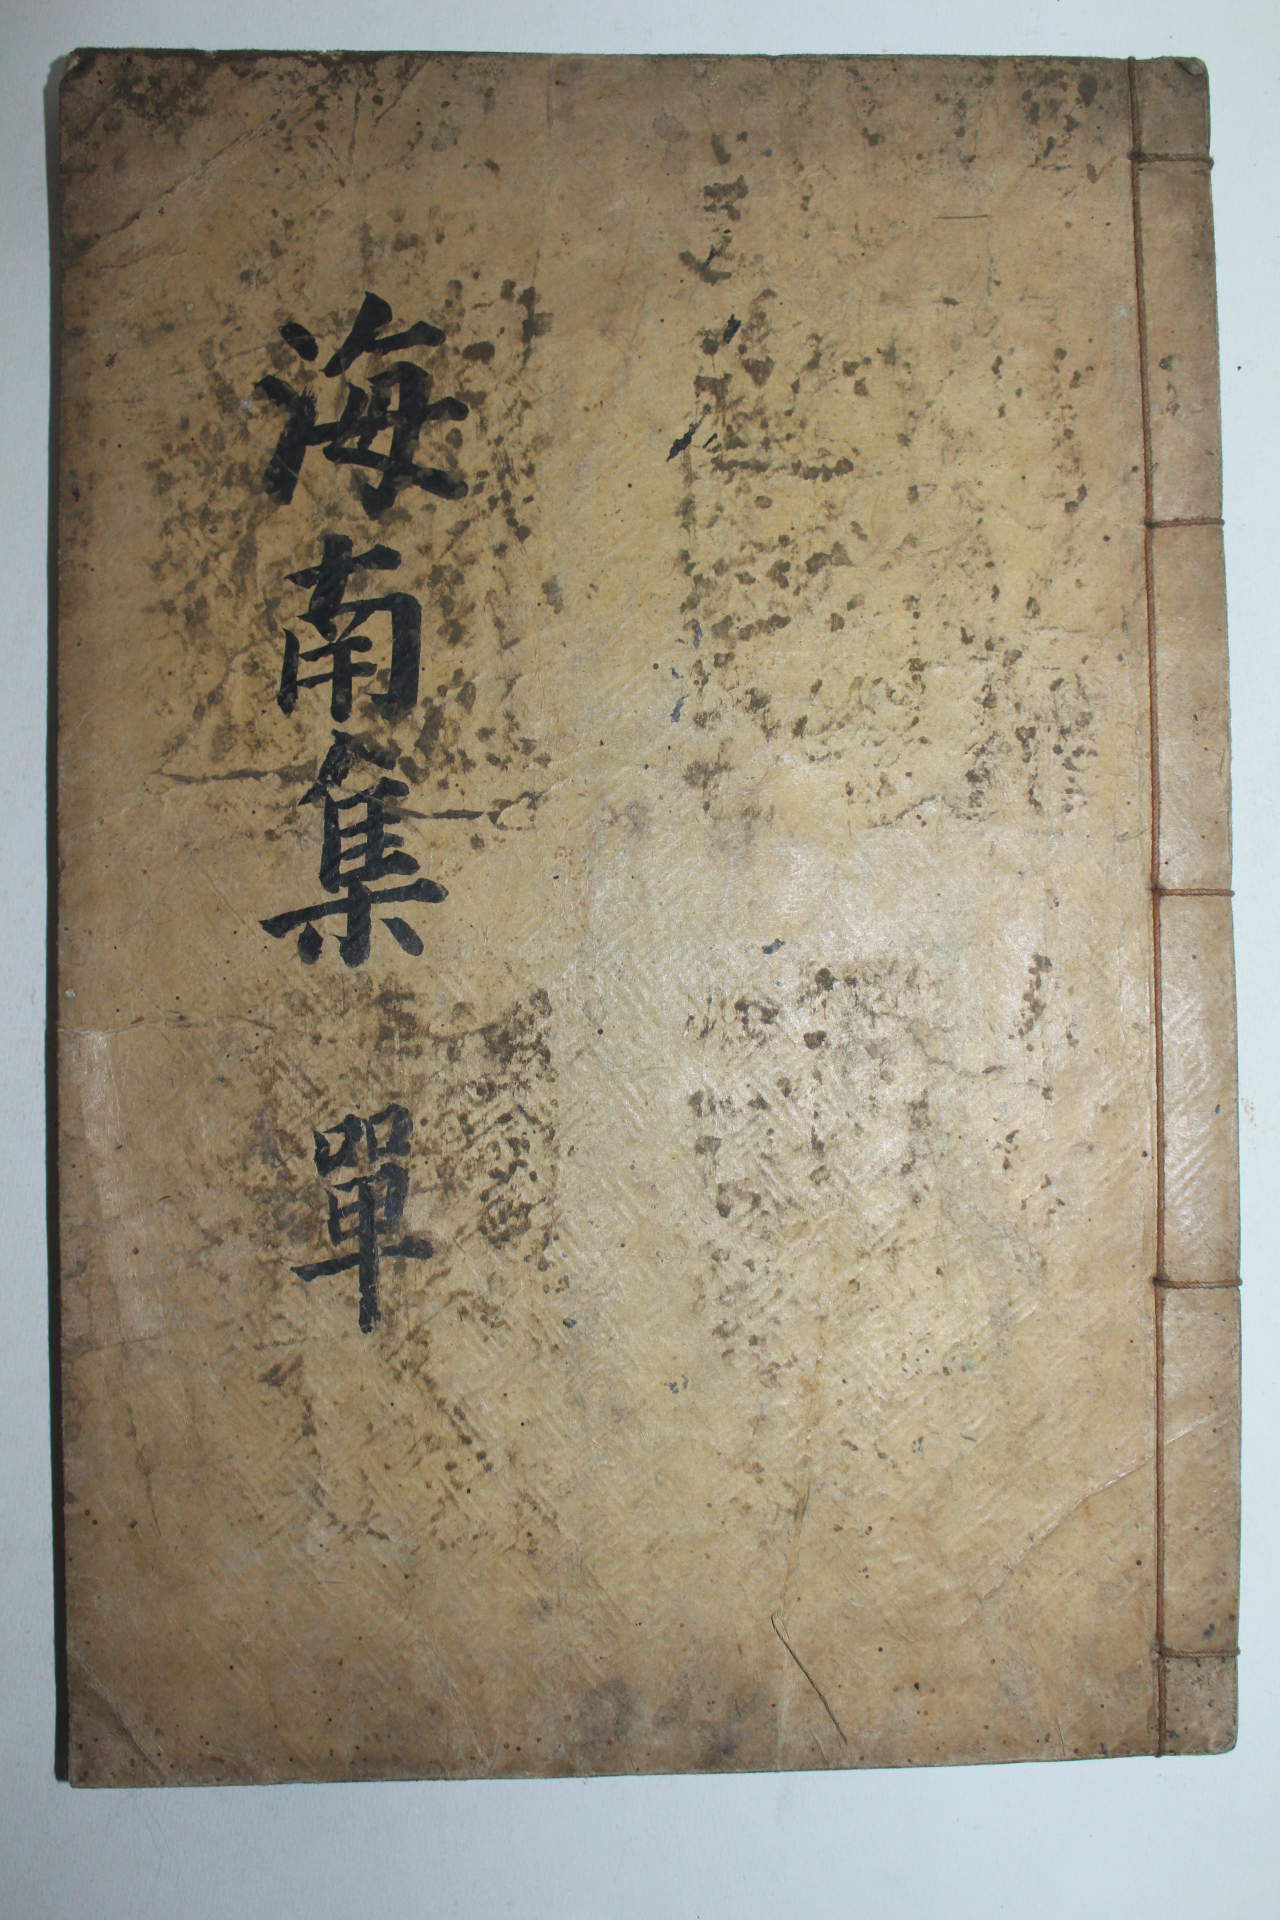 海南集 單